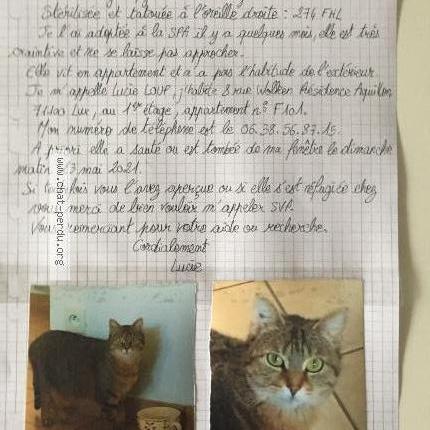 Stérilisée et tatouée à l'oreille droite : 274 FHL
Je l'ai adoptée à la SPA il y a quelques mois, elle est très
craintive et ne se laisse pas approcher.
Elle vit en appartement et n'a pas l'habitude de l'extérieur.
Je m'appelle Lucie LOUP, j'habite 8 rue Wolken Résidence Aquilon
71100 Lux, au 1er étage, appartement n° F101.
Mon numero de téléphone est le 06.58.56.87.15.
A priori elle a sauté ou est tombée de ma fenêtre le dimanche
matin 23 mai 2021.
Si toutefois vous l'avez aperçue ou si elle s'est réfugiée chez
vous, merci de bien vouloir m'appeler SVP.
Vous remerciant pour votre aide ou recherche.
Cordialement
Lucie
www.chat-perdu.org